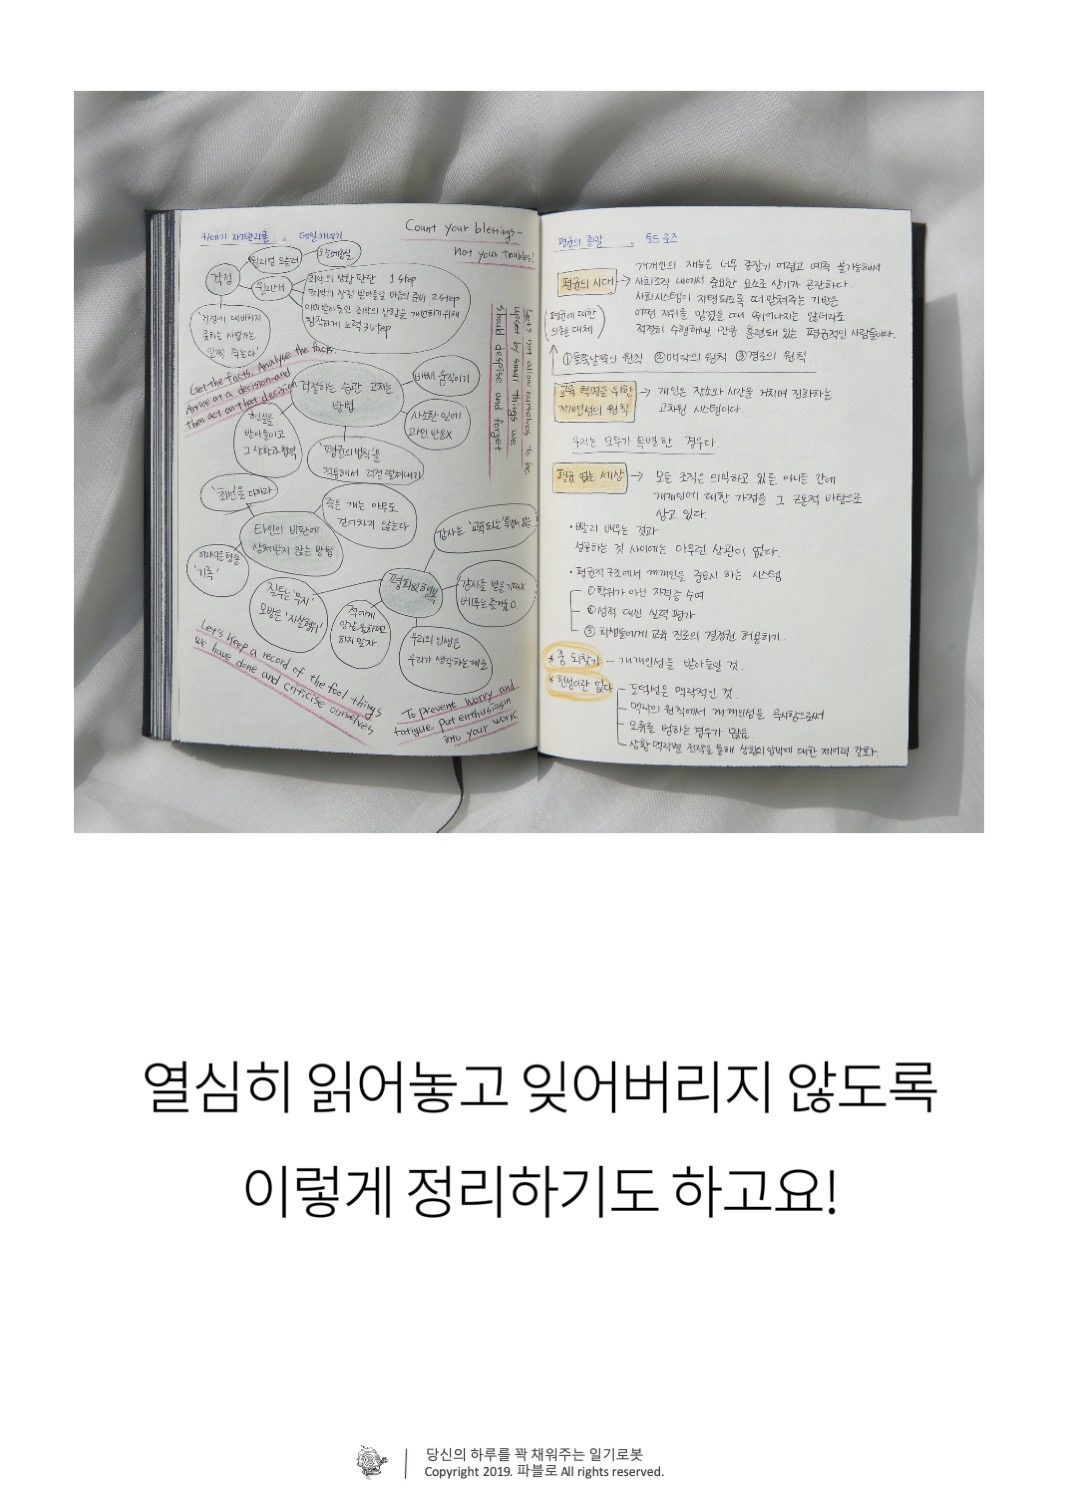 카네기 자기관리론 . 데일카네기
Count your blessings-
Not your troubles!
걱정
윌리엄 오슬러
오늘에충실
최악의 상황 판단 1 step
최악의 상황 받아들일 마음의 준비 2 step
이미 받아들인 최악의 상황을 개선하기 위해
침착하게 노력 3 step
'걱정에 대비하지
못하는 사업가는
일찍 죽는다'
Get the facts. Analyse the facts.
Arrive at a decision-and
then act on that decision
Let's not allow ourselves to be
upset by small things we
should despise and forget
걱정하는 습관 고치는
방법
바삐 움직이기
사소한 일에
과민 반응X
현실을
받아들이고
그 상황과 협력
'평균의 법칙'을
적용해서 걱정 떨쳐내기
'최선'을 다하라
죽은 개는 아무도
걷어차지 않는다
타인의 비판에
상처받지 않는 방법
어리석은 행동
'기록'
감사는 '교육'되는
평화&행복
질투는 '무지'
모방은 '자살행위'
적에게
하지 말자
감사를 받을 기대X
베푸는 즐거움O
우리의 인생은
우리가 생각하는대로
Let's keep a record of the fool things
we have done and criticise ourselves
To prevent worry and
fatigue, put enthusiasm
into your work
평균의 종말 . 토드 로즈
평균의 시대
개개인의 재능은 너무 종잡기 어렵고 예측 불가능해서
사회조직 내에서 중요한 요소로 삼기가 곤란하다
사회시스템이 지탱되도록 떠받쳐주는 기반은
어떤 지위를 맡겼을 때 뛰어나지는 않더라도
적절히 수행해낼 만큼 훈련돼 있는 평균적인 사람들이다.
평균에 대한
의존 대체
①들쭉날쭉의 원칙 ②맥락의 원칙 ③경로의 원칙
교육 혁명을 위한
개개인성의 원칙
개인은 장소와 시간을 거치며 진화하는
고차원 시스템이다.
우리는 모두가 특별한 경우다
평균 없는 세상
모든 조직은 의식하고 있든 아니든 간에
개개인에 대한 가정을 그 근본적 바탕으로
삼고 있다.
• 빨리 배우는 것과
성공하는 것 사이에는 아무런 상관이 없다.
• 평균적 구조에서 개개인을 중요시 하는 시스템
①학위가 아닌 자격증 수여
②성적 대신 실력 평가
③ 학생들에게 교육 진로의 결정권 허용하기.
* 총 되찾기 – 개개인성을 받아들인 것.
* 천성이란 없다
도덕성은 맥락적인 것.
맥락의 원칙에서 개개인성을 무시함으로써
오류를 범하는 경우가 많음
상황 맥락별 전략을 통해 상황의 압박에 대한 제어력 강화.
열심히 읽어놓고 잊어버리지 않도록
이렇게 정리하기도 하고요!
당신의 하루를 꽉 채워주는 일기로봇
Copyright 2019. 파블로 All rights reserved.